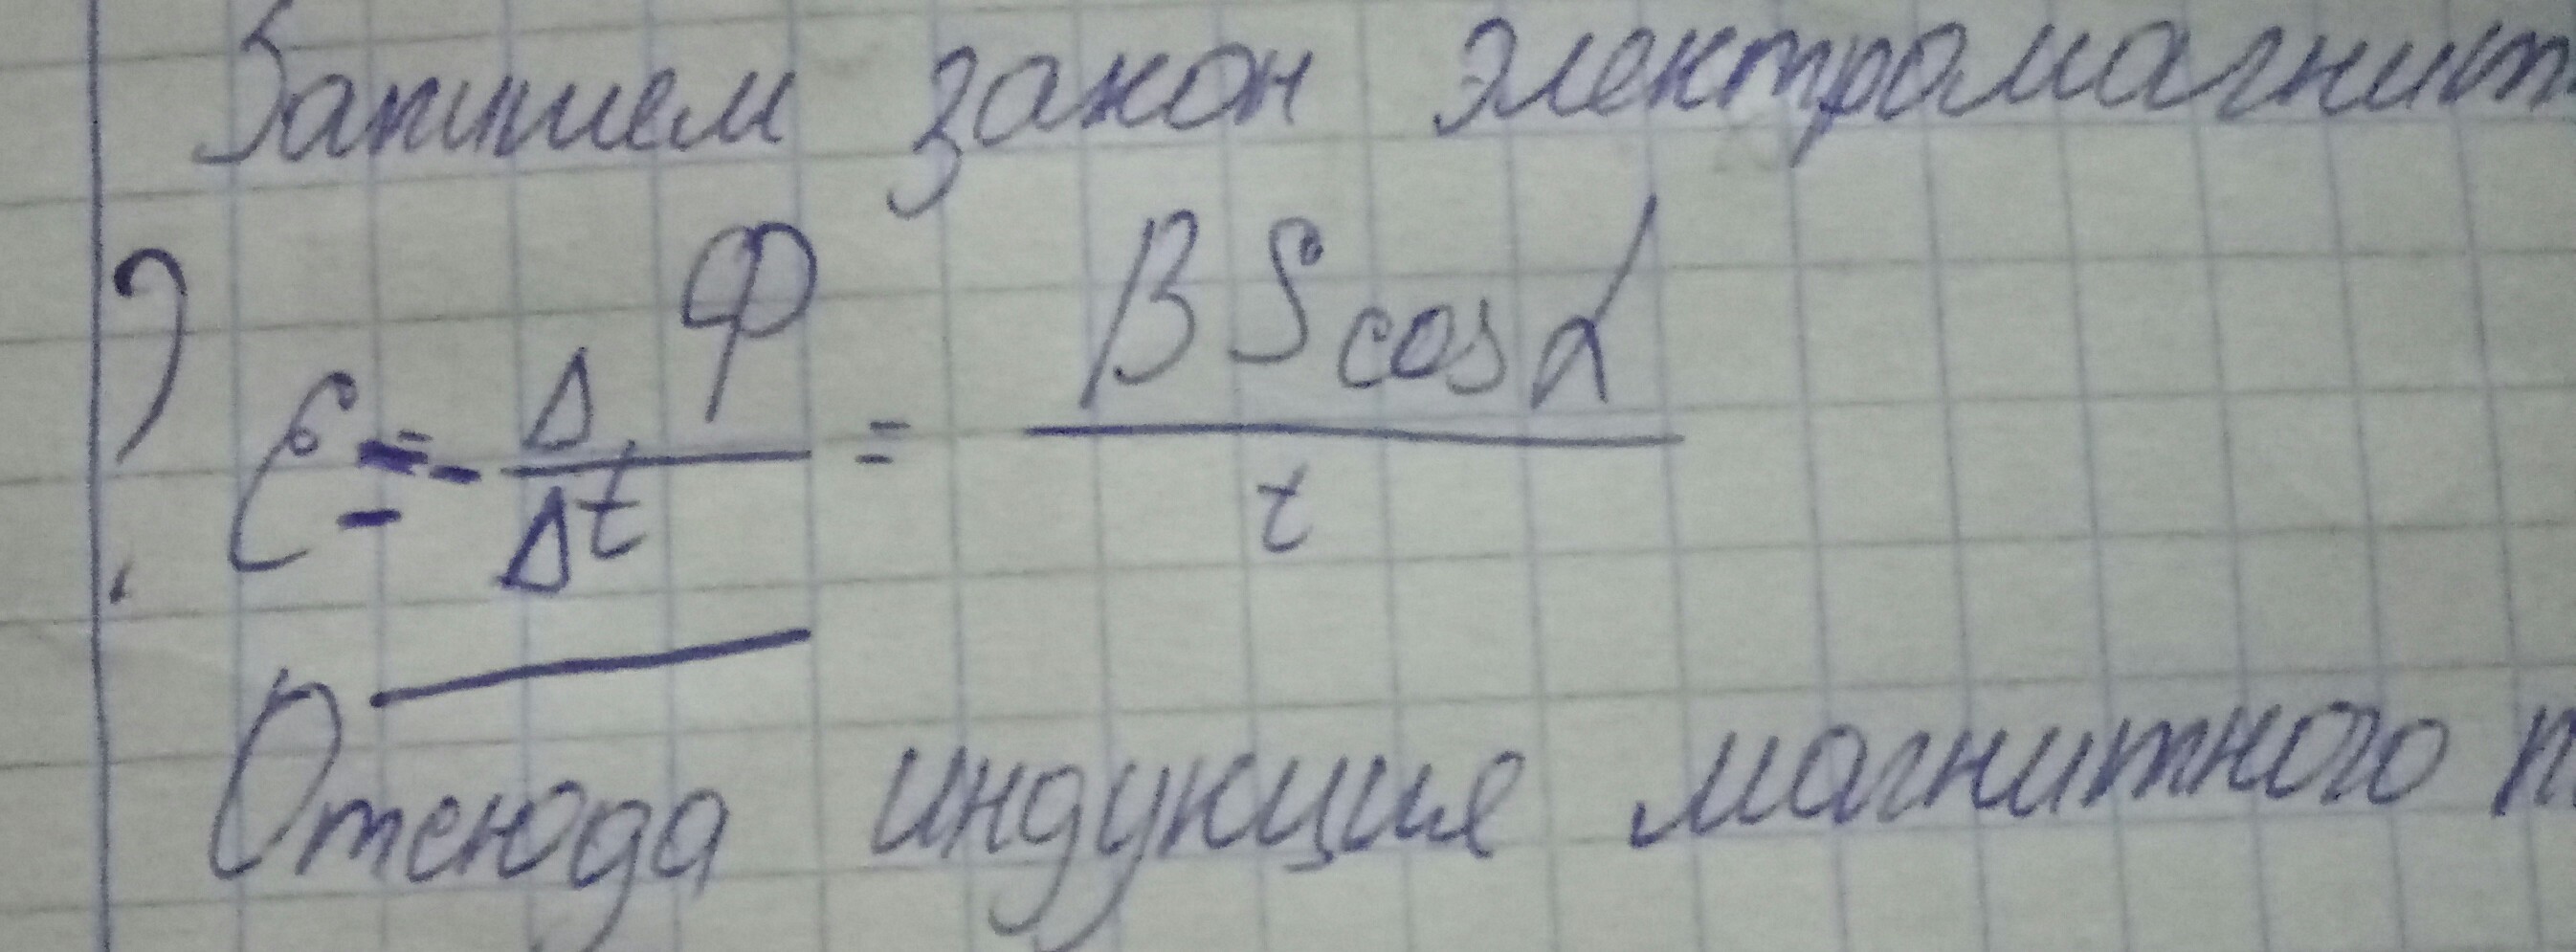 Запишем закон электромагнит
? ε = - ΔФ/Δt = BScosα/t
Отсюда индукция магнитного п